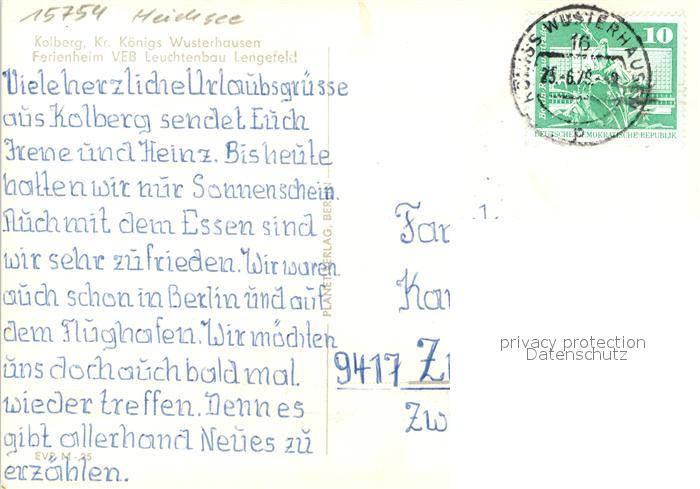 15754 Heidesee
Kolberg, Kr. Königs Wusterhausen
Ferienheim VEB Leuchtenbau Lengefeld
Viele herzliche Urlaubsgrüsse
aus Kolberg sendet Euch
Irene und Heinz. Bis heute
hatten wir nur Sonnenschein.
Auch mit dem Essen sind
wir sehr zufrieden. Wir waren
auch schon in Berlin und auf
dem Flughafen. Wir möchten
uns doch auch bald mal
wieder treffen. Denn es
gibt allerhand Neues zu
erzählen.
EVP M -,25
PLANET-VERLAG, BERLIN
KÖNIGS WUSTERHAUSEN
16
10
DEUTSCHE DEMOKRATISCHE REPUBLIK
Fa
Ka
9417 Z
Zw
privacy protection
Datenschutz